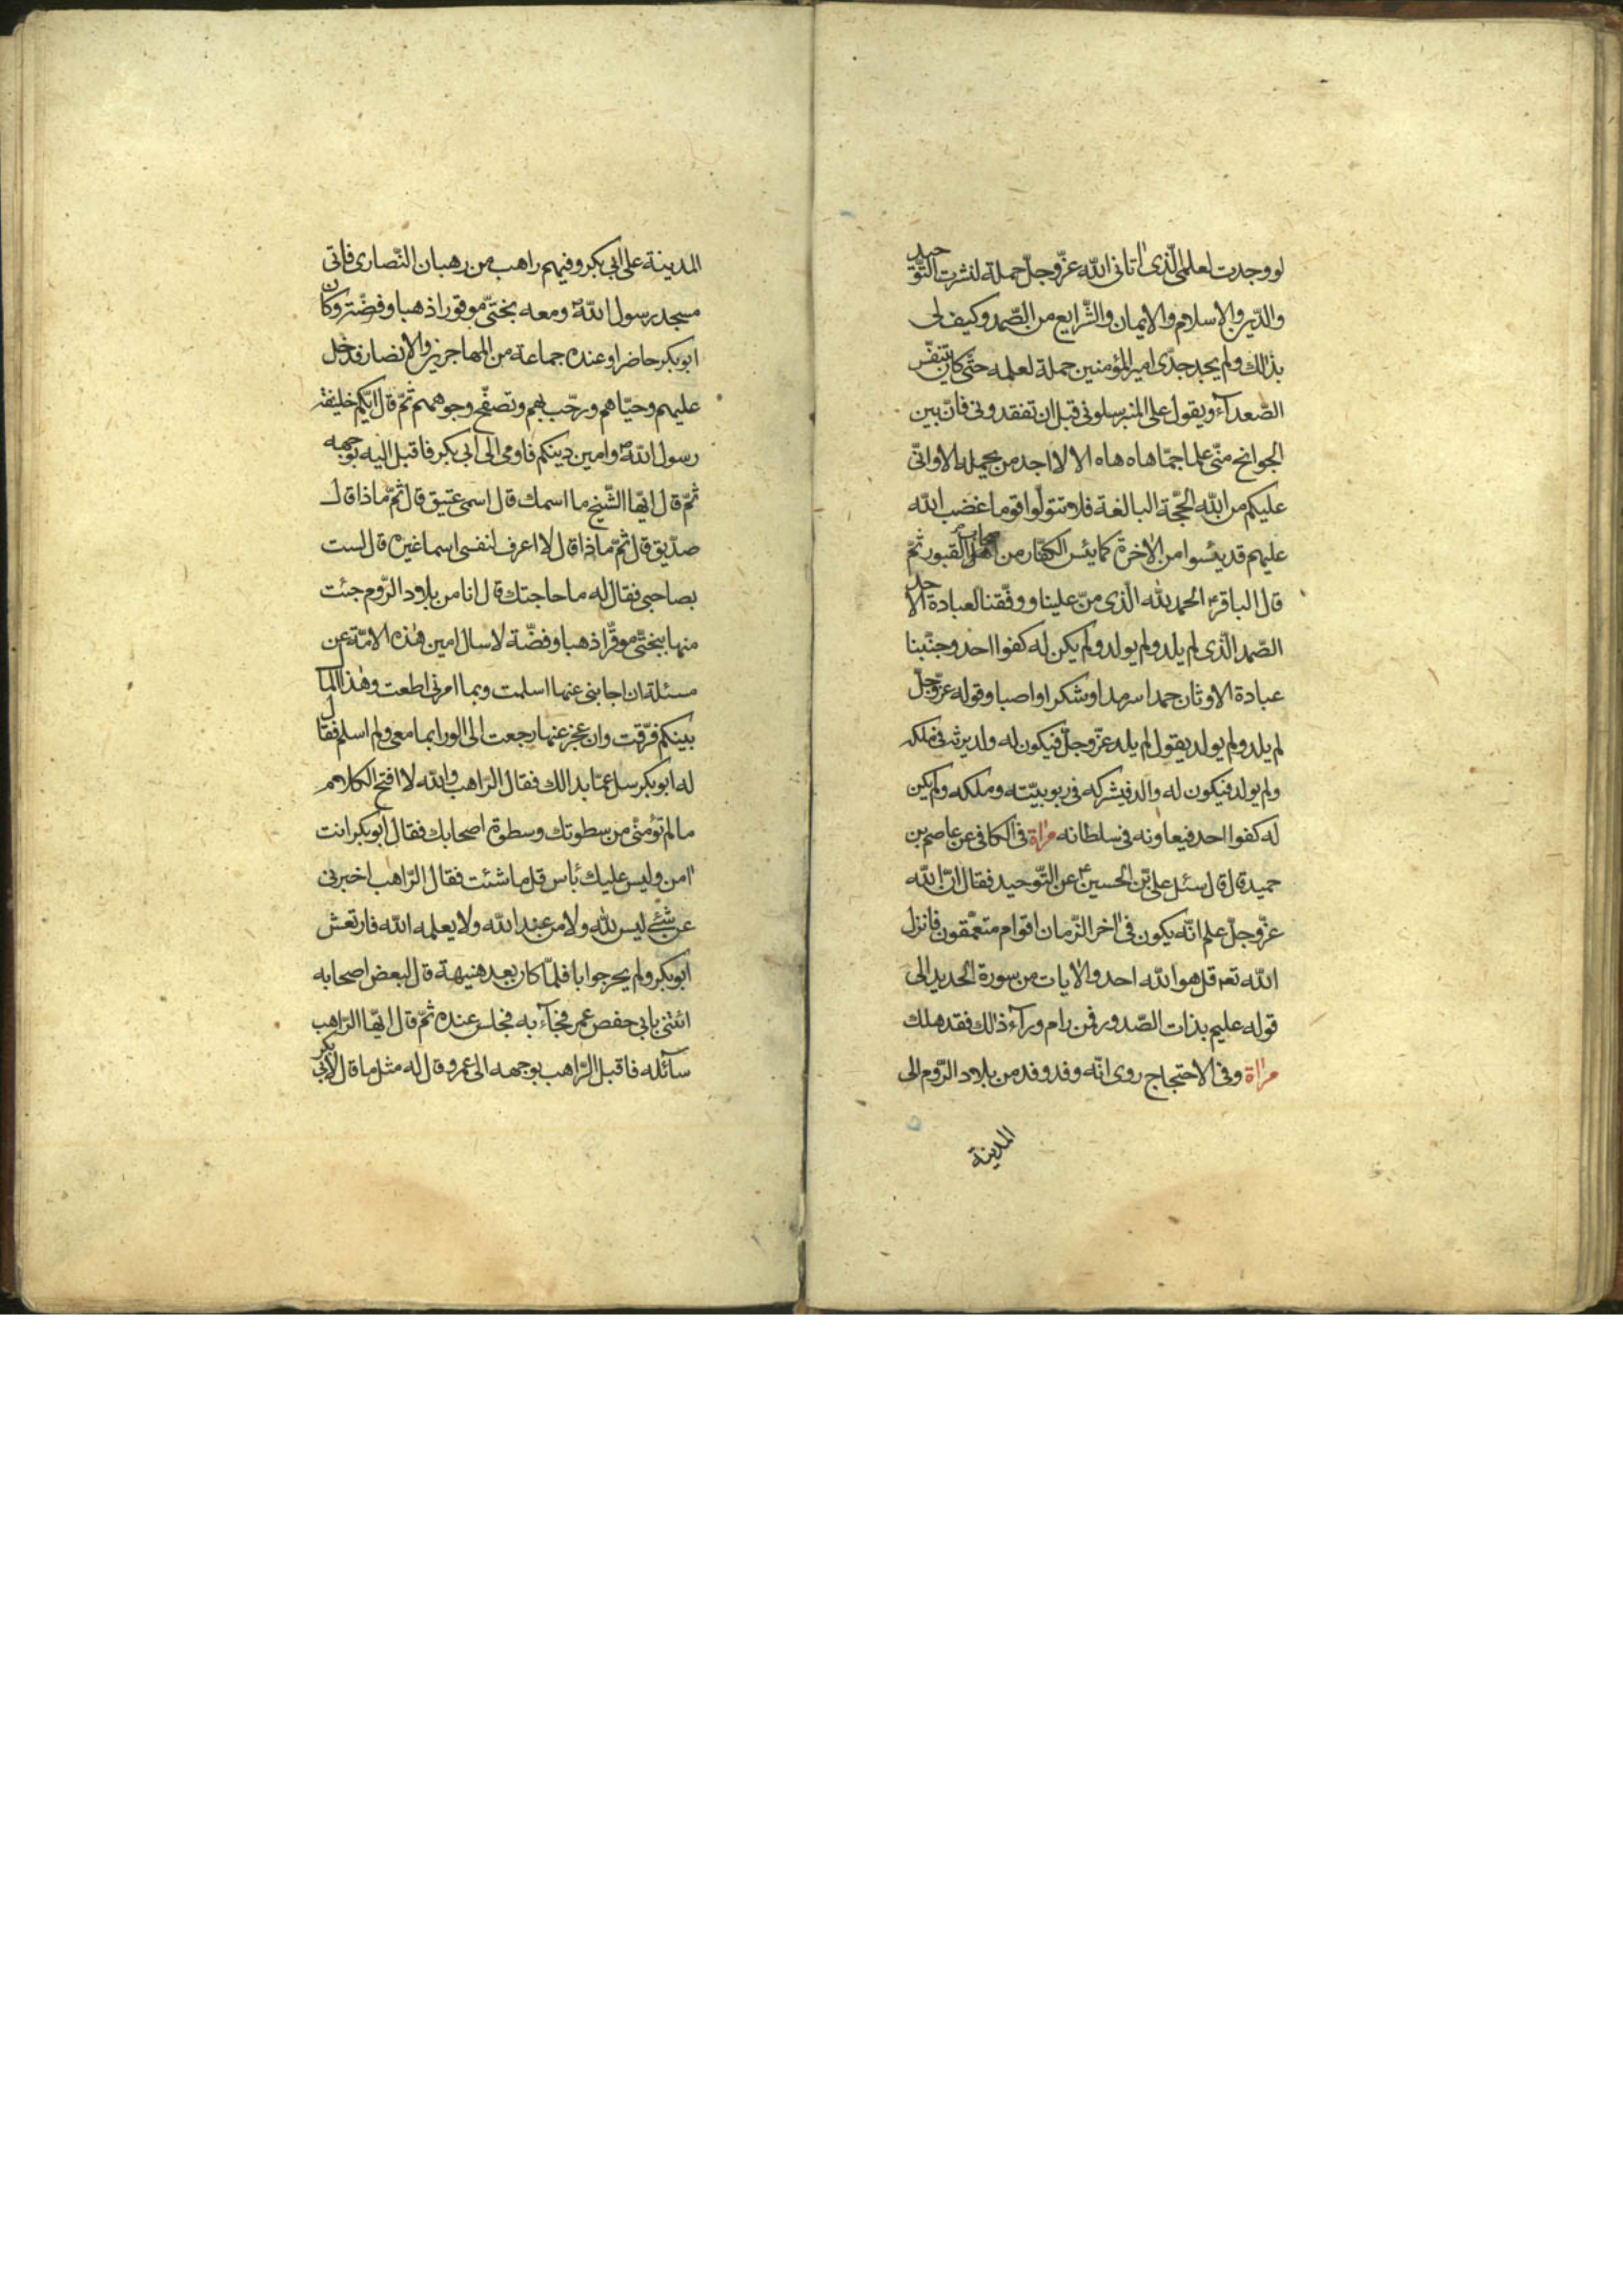 لو وجدت لعلمى الّذى اتانى اللّه عزّ وجلّ حملة لنشرت التّوحيد
والدّين والاسلام والايمان والشّرايع من الصّمد وكيف لى
بذلك ولم يجد جدّى امير المؤمنين حملة لعلمه حتّى كان يتنفّس
الصّعدآء ويقول على المنبر سلونى قبل ان تفقدونى فانّ بين
الجوانح منّى علما جمّا هاه هاه الا لا اجد من يحمله الا وانّى
عليكم من اللّه الحجّة البالغة فلا تتولّوا قوما غضب اللّه
عليهم قد يئسوا من الاخرة كما يئس الكفّار من اصحاب القبور ثمّ
قال الباقرؑ الحمد للّه الّذى منّ علينا ووفّقنا لعبادة الاحد
الصّمد الّذى لم يلد ولم يولد ولم يكن له كفوا احد وجنّبنا
عبادة الاوثان حمدا سرمدا وشكرا واصبا وقوله عزّ وجلّ
لم يلد ولم يولد يقول لم يلد عزّ وجلّ فيكون له ولد يرثه فى ملكه
ولم يولد فيكون له والد فيشركه فى ربوبيّته وملكه ولم يكن
له كفوا احد فيعاونه فى سلطانه مراة فى الكافى عن عاصم بن
حميد قال قال سئل علىّ بن الحسينؑ عن التّوحيد فقال انّ اللّه
عزّ وجلّ علم انّه يكون فى اخر الزّمان اقوام متعمّقون فانزل
اللّه تعـ قل هو اللّه احد والايات من سورة الحديد الى
قوله عليم بذات الصّدور فمن رام ورآء ذلك فقد هلك
مراة وفى الاحتجاج روى انّه وفد وفد من بلاد الرّوم الى
المدينة
المدينة على ابى بكر وفيهم راهب من رهبان النّصارى فاتى
مسجد رسول اللّهؐ ومعه بختىّ موقورا ذهبا وفضّة وكان
ابوبكر حاضرا وعنده جماعة من المهاجرين والانصار فدخل
عليهم وحيّاهم ورحّب بهم وتصفّح وجوههم ثمّ قال ايّكم خليفة
رسول اللّهؐ وامين دينكم فاومى الى ابى بكر فاقبل اليه بوجهه
ثمّ قال ايّها الشّيخ ما اسمك قال اسمى عتيق قال ثمّ ماذا قال
صدّيق قال ثمّ ماذا قال لا اعرف لنفسى اسما غيره قال لست
بصاحبى فقال له ما حاجتك قال انا من بلاد الرّوم جئت
منها ببختىّ موقّرا ذهبا وفضّة لاسال امين هذه الامّة عن
مسئلة ان اجابنى عنها اسلمت وبما امرنى اطعت وهذا المال
بينكم فرّقت وان عجز عنها رجعت الى الورا بما معى ولم اسلم فقال
له ابوبكر سل عمّا بدالك فقال الرّاهب واللّه لا افتح الكلام
ما لم تؤمنّى من سطوتك وسطوة اصحابك فقال ابوبكر انت
امن وليس عليك بأس قل ما شئت فقال الرّاهب اخبرنى
عن شئ ليس للّه ولا من عند اللّه ولا يعلمه اللّه فارتعش
ابوبكر ولم يحر جوابا فلمّا كان بعد هنيهة قال لبعض اصحابه
ائتنى بابى حفص عمر فجآء به فجلس عنده ثمّ قال ايّها الرّاهب
سآئله فاقبل الرّاهب بوجهه الى عمر وقال له مثل ما قال لابى بكر